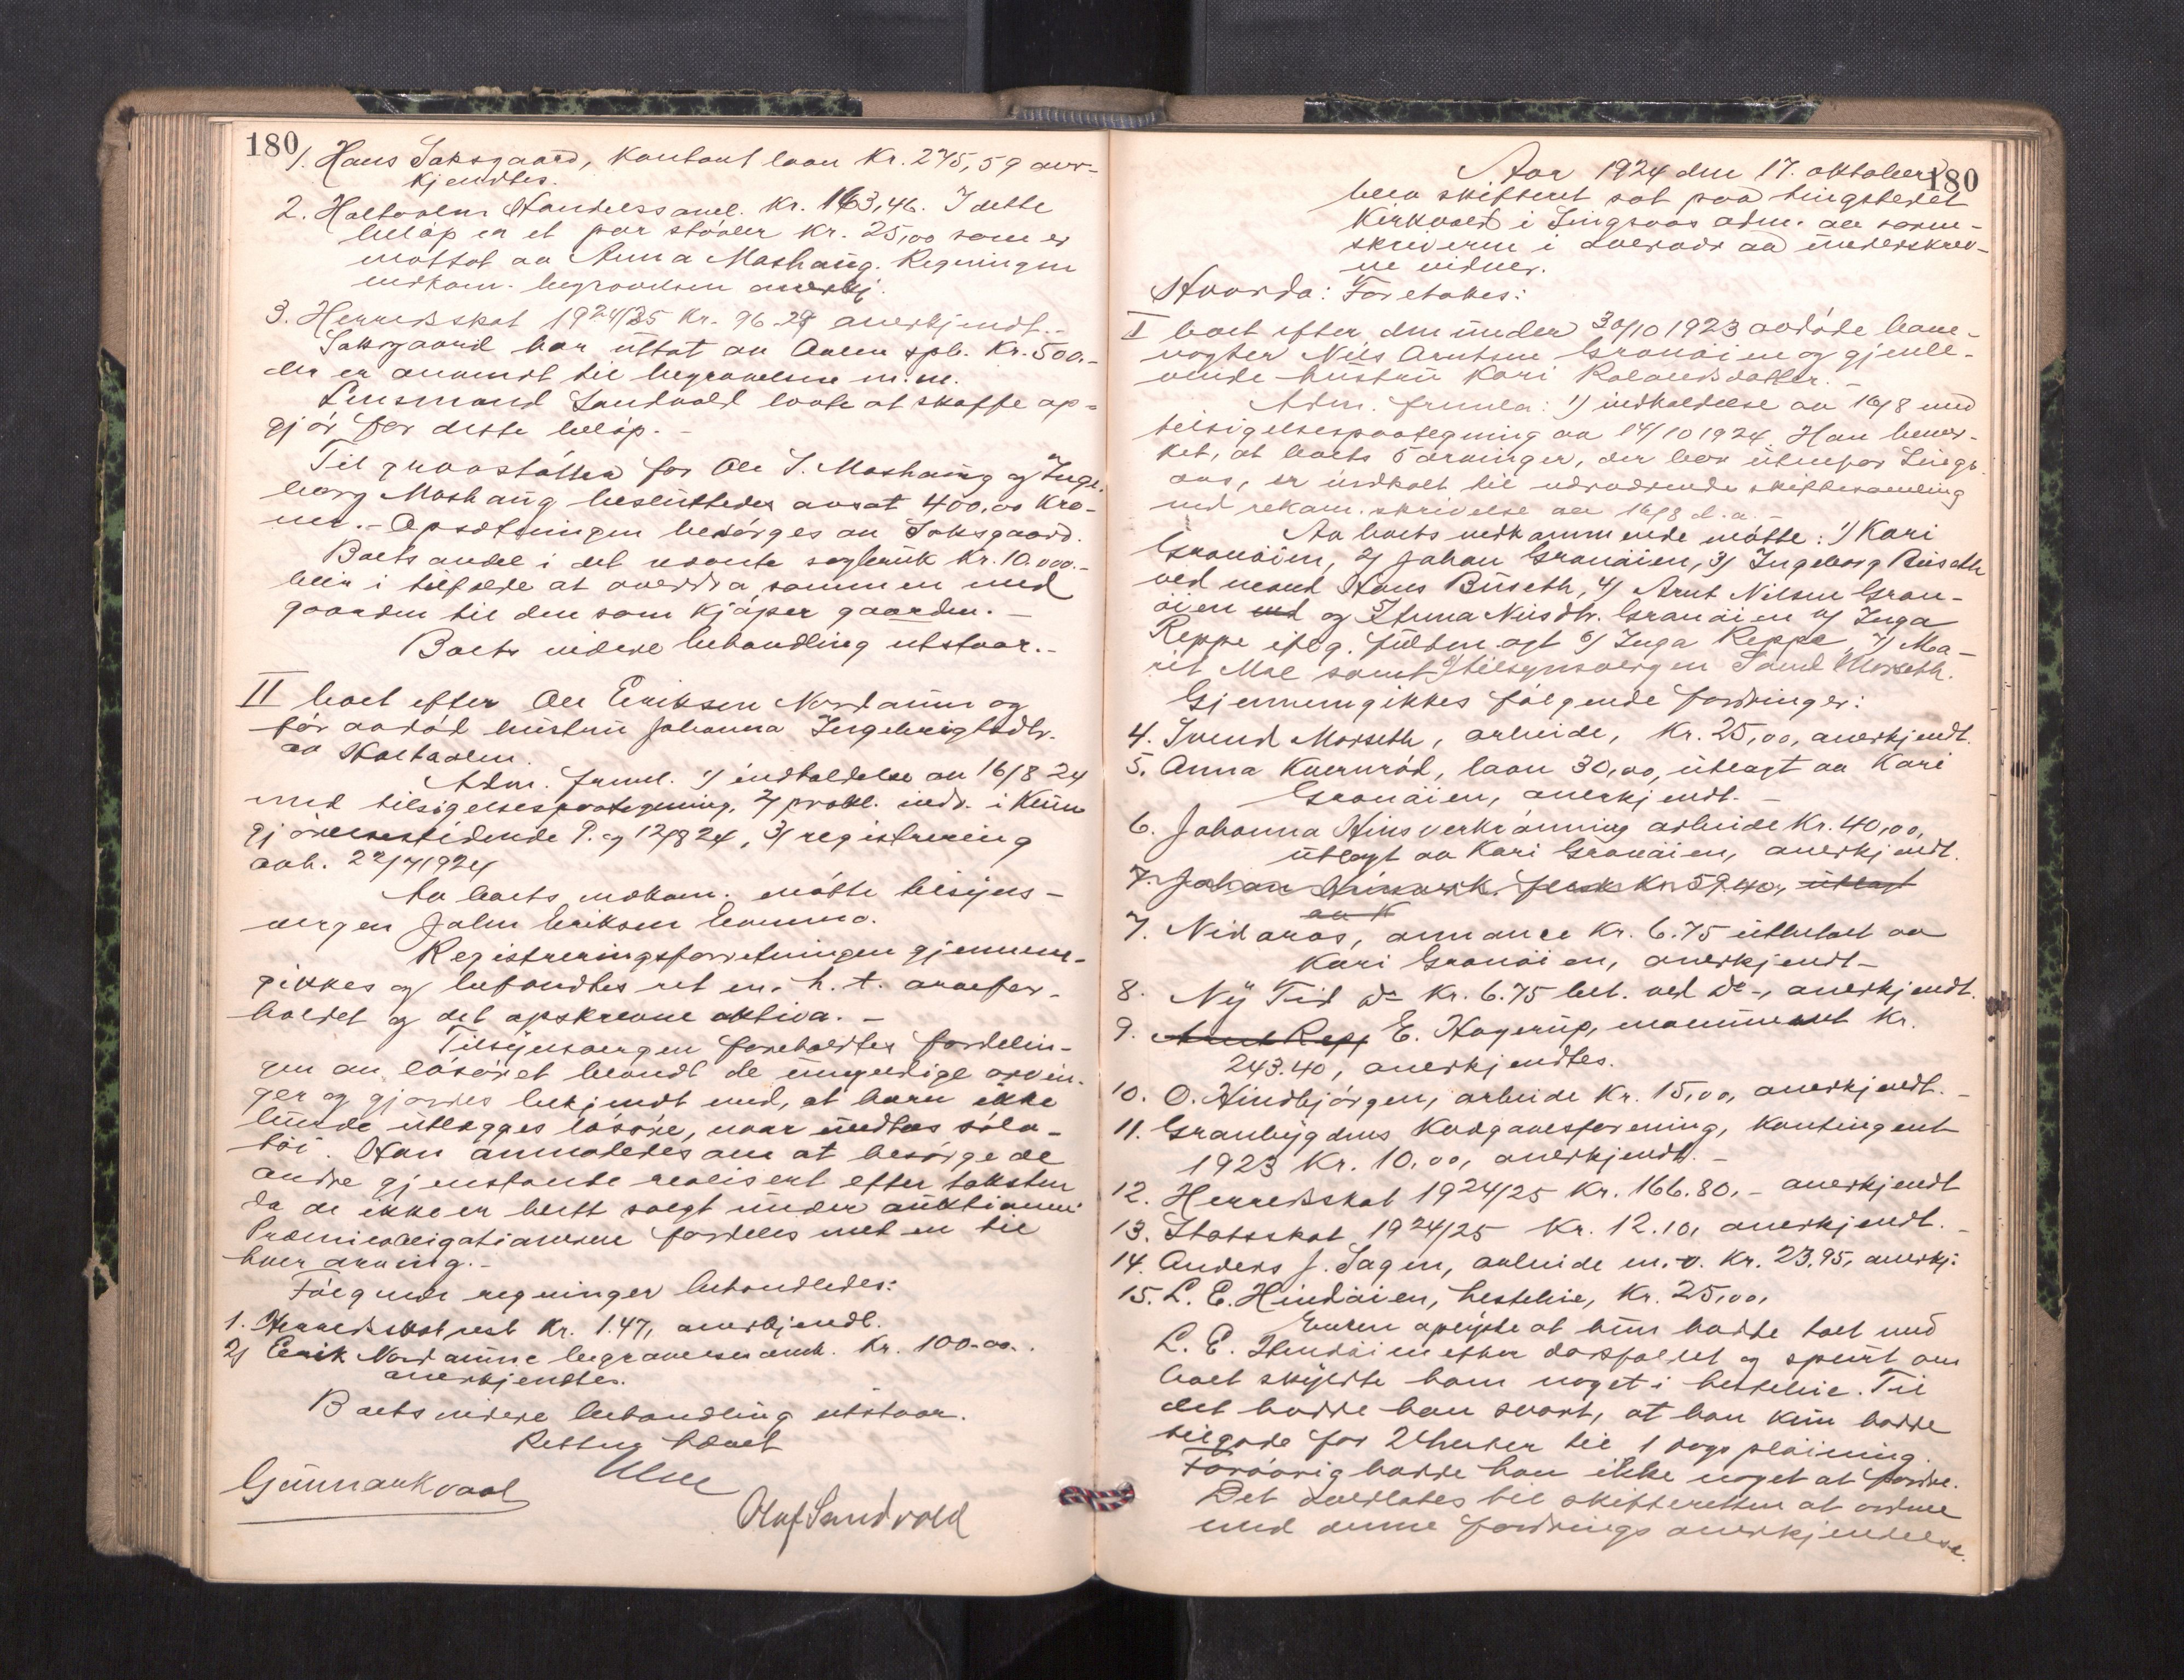 180
1. Hans Saksgaard, kontant laan kr. 275,59 aner-
kjendtes.
2. Holtaalens Handelssaml. kr. 163,46. I dette
beløp er et par støvler kr. 25,00 som er
mottat av Anna Moshaug. Regningen
vedkom. begravelsen anerkj.
3. Herredsskat 1924/25 kr. 96.29 anerkjendt.-
Saksgaard har uttat av Aalen spb. kr. 500.-
der er anvendt til begravelse m.m.
Lensmand Sandvold lovte at skaffe op-
gjør for dette beløp.-
Til gravstøtter for Ole I. Moshaug og Inge-
borg Moshaug besluttedes avsat 400,00 kro-
ner.- Opsætningen besørges av Saksgaard.
Boets andel i det nævnte sagbruk kr. 10.000.-
blir i tilfælde at overdra sammen med
gaarden til den som kjøper gaarden.-
Boets videre behandling utstaar.-
II boet efter Ole Eriksen Nordaune og
før avdød hustru Johanna Ingebrigtsdtr.
av Holtaalen.
Adm. freml. 1) indkaldelse av 16/8 24
med tilsigelsespaategning, 2) prokl. indr. i Kun-
gjørelsestidende 9. og 12/8 24, 3) registrering
avh. 22/7 1924
Av boets vedkom. møtte tilsyns-
vergen John Eriksen
Registreringsforretningen gjennem-
gikkes og befandtes ret en. h. t. arvefor-
holdet og det opskrevne aktiva.-
Tilsynsvergen foreholdtes fordelin-
gen av løsøret blandt de umyndige arvin-
ger og gjordes bekjendt med, at barn ikke
burde utlægges løsøre, naar undtas sølv-
tøi. Han anmodedes om at besørge de
andre gjenstande realisert efter taksten
da de ikke er blitt solgt under auktionen.
Præmieobligationene fordeles med en til
hver arving.-
Følgende regninger behandledes:
1. Herredsskat rest kr. 1.47, anerkjendt.
2) Erik Nordaune begravelsesomk. kr. 100.00.
anerkjendtes.
Boets videre behandling utstaar.
Retten hævet
Gunnar Kvaal
Olaf Sandvold
180
Aar 1924 den 17. oktober
blev skifteret sat paa tingstedet
Kirkvold i Singsaas adm. av soren-
skriveren i overvær av underskrev-
ne vidner.
Hvorda: Foretokes:
I boet efter den under 30/10 1923 avdøde
Nils Arntsen Granøien og gjenle-
vende hustru Kari Roaldsdatter.-
Adm. fremla: 1) indkaldelse av 16/8 med
tilsigelsespaategning av 14/10 1924. Han bemer-
ket, at boets arvinger, der bor utenfor Sings-
aas, er indkalt til nærværende skiftesamling
ved rekom. skrivelse av 16/8 d.a.-
Av boets vedkommende møtte: 1) Kari
Granøien, 2) Johan Granøien, 3) Ingeborg Buseth
ved mand Hans Buseth, 4) Arnt Nilsen Gran-
øien og Anna Nilsdtr. Granøien 5) Inga
Reppe iflg. fuldmagt 6) Inga Reppe, 7) Ma-
rit Moe samt tilsynsvergen Svend Morseth.
Gjennemgikkes følgende fordringer:
4. Svend Morseth, arbeide, kr. 25,00, anerkjendt.
5. Anna Kvernrød, laan 30,00, utlagt av Kari
Granøien, anerkjendt.-
6. Johanna Hinsverk rønning arbeide kr. 40,00,
utlagt av Kari Granøien, anerkjendt.
7. Johan flesk kr 59.40, utlagt
av K
7. Nidaros, annonce kr. 6.75 utbetalt av
Kari Granøien, anerkjendt-
8. Ny Tid do kr. 6.75 bet. ved do-, anerkjendt.
9. Arnt Repp E. Hagerup, monument kr.
243.40, anerkjendtes.
10. O. Hindbjørgen, arbeide kr. 15,00, anerkjendt.-
11. Granbygdens kvægavlsforening, kontingent
1923 kr. 10,00, anerkjendt.-
12. Herredsskat 1924/25 kr. 166.80.- anerkjendt
13. Statsskat 1924/25 kr. 12.10, anerkjendt.-
14. Anders J. Sagen, arbeide m.v. kr. 23.95, anerkj.
15. L. E. Hindøien, hesteleie, kr. 25,00,
Enken oplyste at hun hadde talt med
L. E. Hindøien efter dødsfaldet og spurt om
boet skyldte ham noget i hesteleie. Til
det hadde han svart, at han kun hadde
tilgode for 2 hester til 1 dags pløining.
Forøvrig hadde han ikke noget at fordre.
Det overlates til skifteretten at ordne
med denne fordrings anerkjendelse.